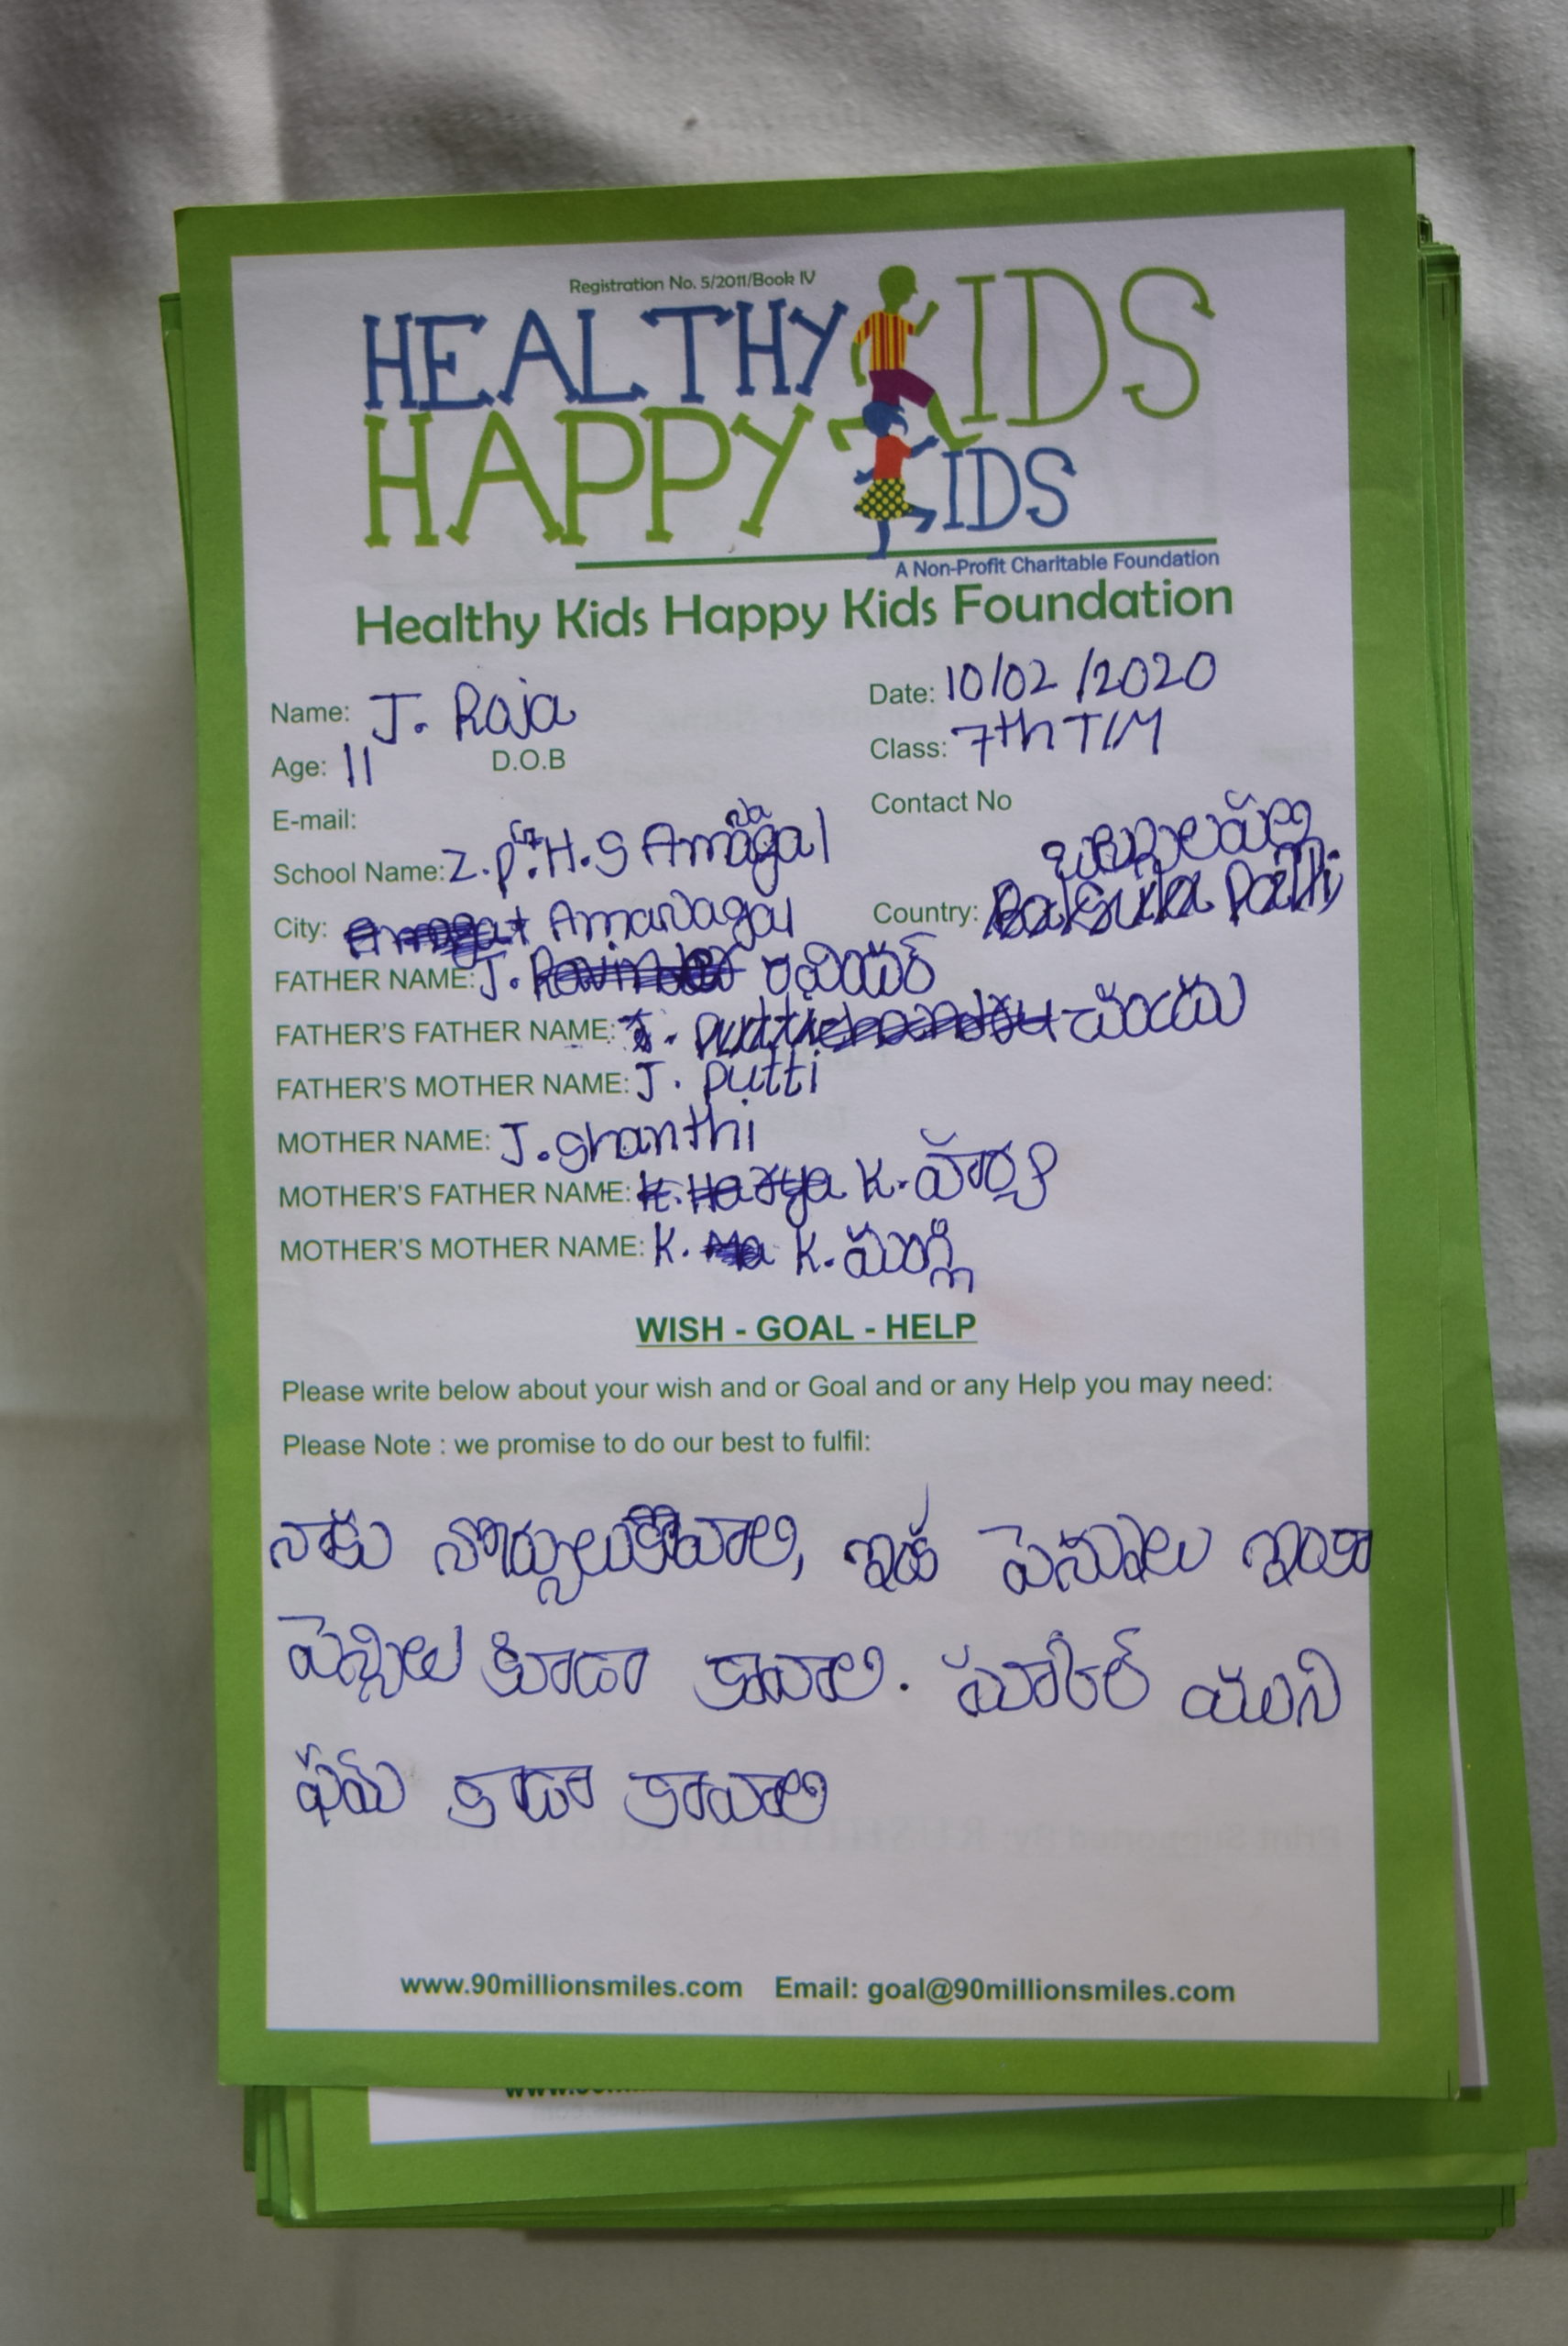 Registration No. 5/2011/Book IV
HEALTHY KIDS
HAPPY KIDS
A Non-Profit Charitable Foundation
Healthy Kids Happy Kids Foundation
Name: J. Raja Date: 10/02/2020
Age: 11 D.O.B Class: 7th T/M
E-mail: Contact No
School Name: Z.P.H.S
City: Amanagal Country:
FATHER NAME: J. రవిందర్
FATHER'S FATHER NAME: చందు
FATHER'S MOTHER NAME: J. putti
MOTHER NAME: J. shanthi
MOTHER'S FATHER NAME: K. హర్య
MOTHER'S MOTHER NAME: K. K. మంగ్లి
WISH - GOAL - HELP
Please write below about your wish and or Goal and or any Help you may need:
Please Note : we promise to do our best to fulfil:
నాకు కావాలి, ఇంక పెన్నులు ఇంకా
పెన్సిలు కూడా కావాలి. యుని
ఫమ్ కాడా కావాలి
www.90millionsmiles.com Email: goal@90millionsmiles.com